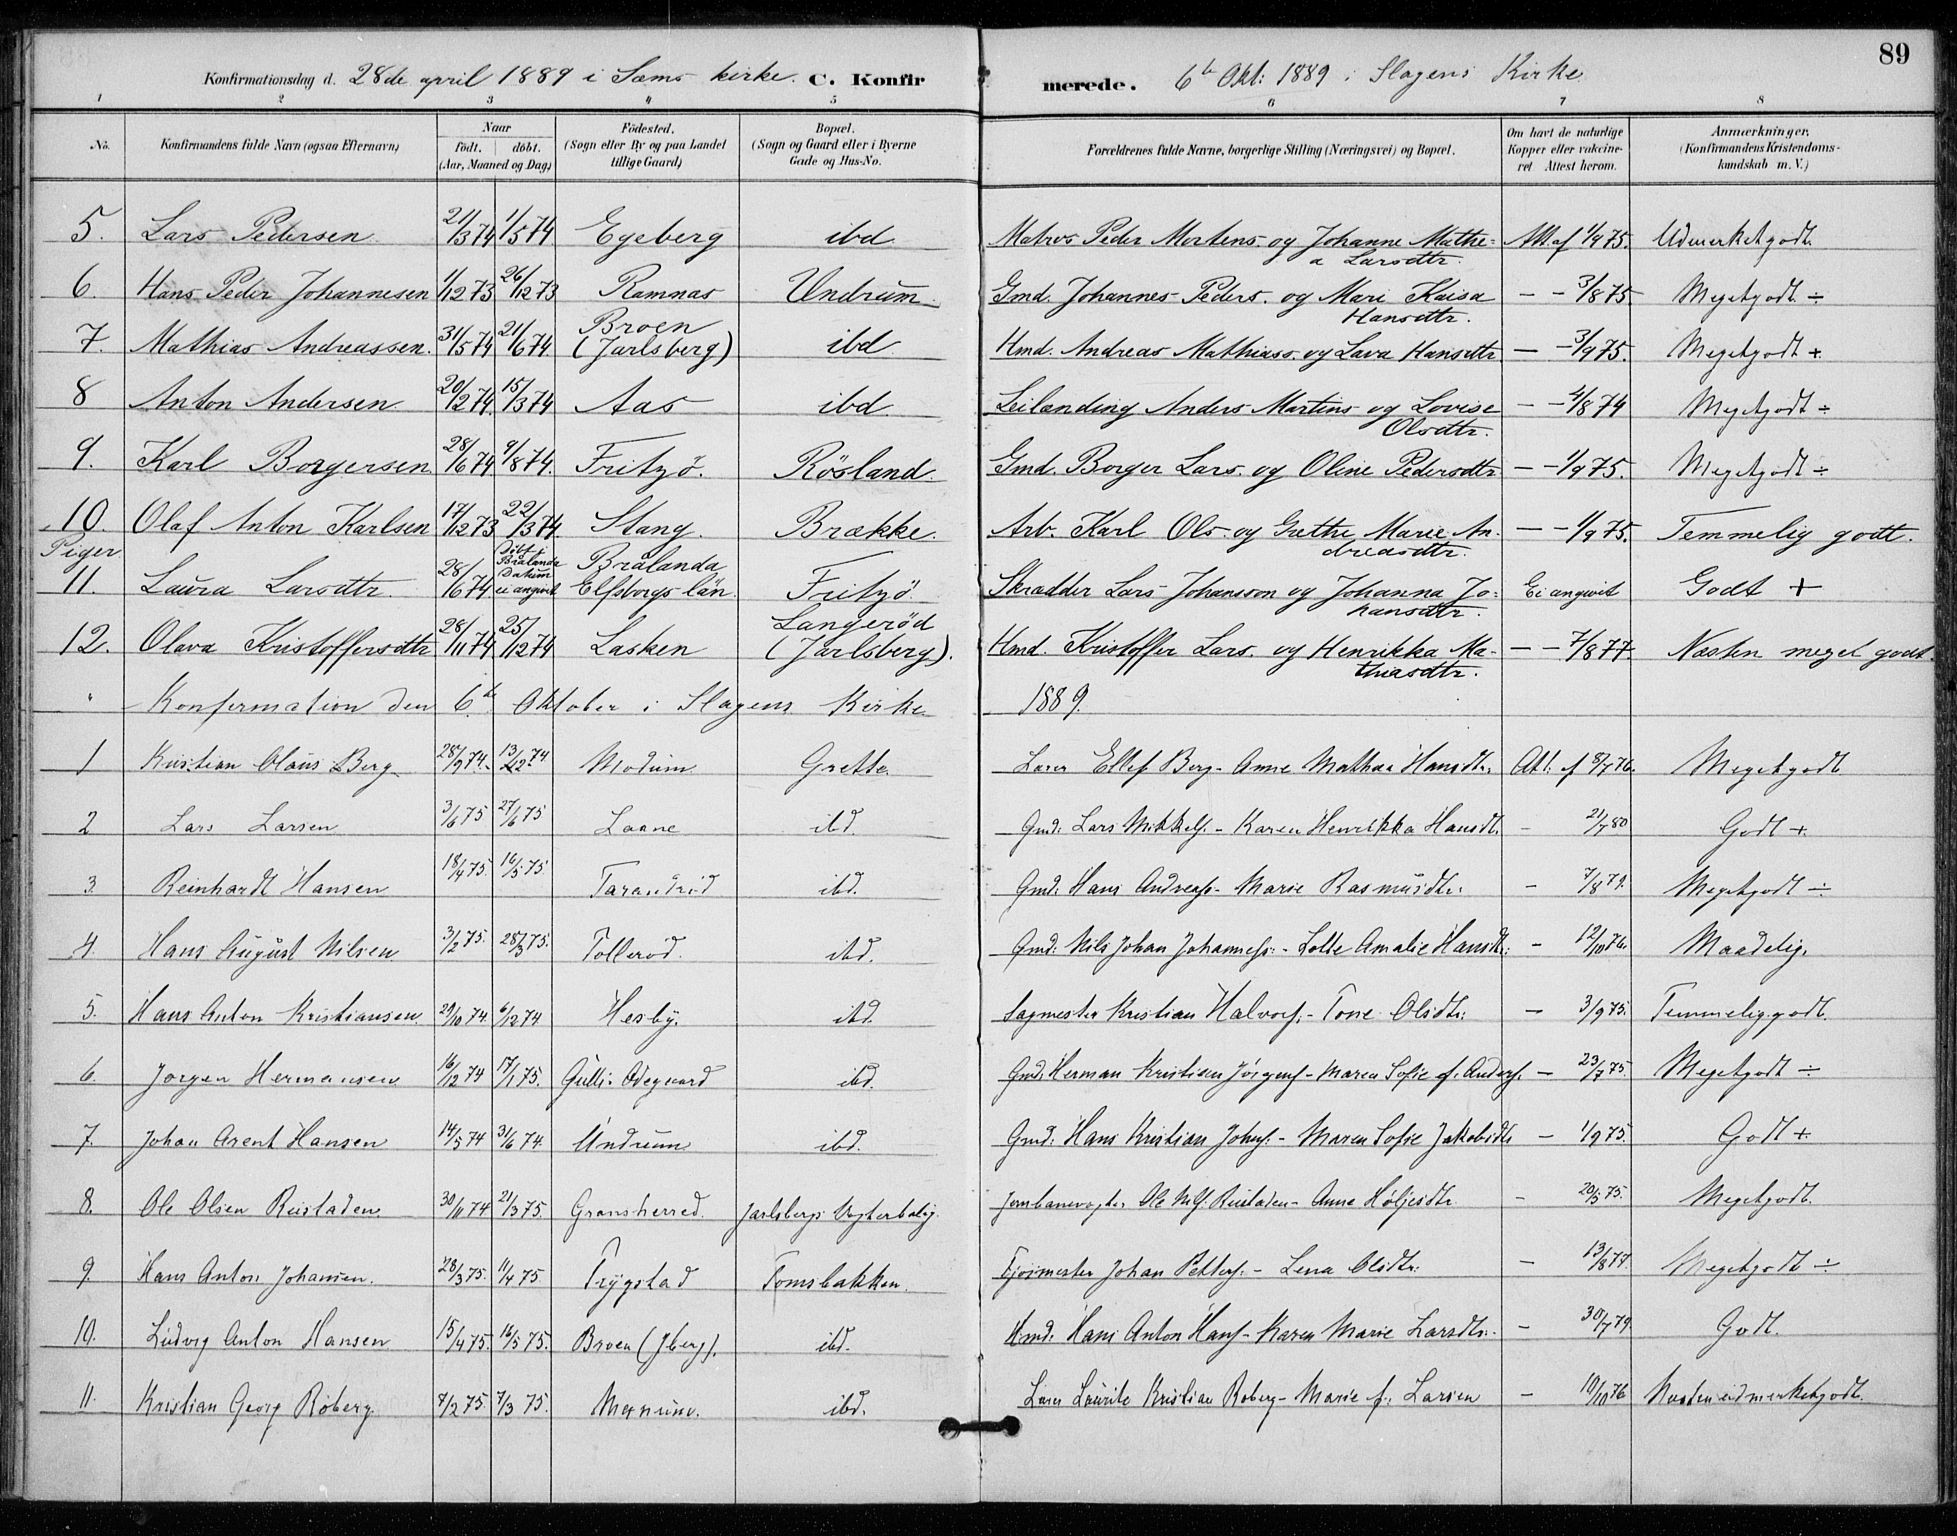 89
Konfirmationsdag d. 28de april 1889 i Sems kirke. C. Konfirmerede. 6te Okt: 1889 i Slagens Kirke
1 2 3 4 5 6 7 8
No. Konfirmandens fulde Navn (ogsaa Efternavn) Naar født. døbt. (Aar, Maaned og Dag) Fødested. (Sogn eller By og paa Landet tillige Gaard) Bopæl. (Sogn og Gaard eller i Byerne Gade og Hus-No. Forældrenes fulde Navne, borgerlige Stilling (Næringsvei) og Bopæl. Om havt de naturlige Kopper eller vakcineret Attest herom. Anmærkninger. (Konfirmandens Kristendomskundskab m. V.)
5. Lars Pedersen 21/3 74 1/5 74 Egeberg ibd Matros Peder Mortens. og Johanne Mathea Larsdtr. Att af 1/9 75. Udmerket godt.
6. Hans Peder Johannesen 1/12 73 26/12 73 Ramnæs Undrum Gmd. Johannes Peders. og Mari Kaisa Hansdtr. — - 3/8 75. Megetgodt ÷
7. Mathias Andreassen. 31/5 74 21/6 74. Broen (Jarlsberg) ibd Hmd. Andreas Mathiass. og Lava Hansdtr — - 3/9 75. Megetgodt +
8 Anton Andersen. 20/2 74. 15/3 74 Aas ibd Leilænding Anders Martins. og Lovise Olsdtr. — - 4/8 74 Megetgodt ÷
9. Karl Borgersen 28/6 74 9/8 74. Fritzø. Røsland. Gmd. Borger Lars. og Oline Pedersdtr — - 1/9 75. Megetgodt ÷
10. Olaf Anton Karlsen 17/12 73 22/3 74. Stang. Brække. Arb. Karl Ols. og Grethe Marie Andreasdtr. — - 1/9 75. Temmelig godt.
Piger
11. Laura Larsdtr. 28/6 74 Døbt i Brålanda Datum ei angivet Brålanda Elfsborgs län. Fritzø. Skrædder Lars Johansson og Johanna Johansdtr. Ei angivet Godt +
12. Olava Kristoffersdtr 28/11 74 25/12 74 Lasken Langerød (Jarlsberg). Hmd. Kristoffer Lars. og Henrikka Mathiasdtr. — - 7/8 77. Næsten meget godt.
" Konfirmation den 6te Oktober i Slagens Kirke 1889.
1 Kristian Olaus Berg 28/9 74. 13/12 74 Modum Grette. Lærer Ellef Berg - Anne Mathea Hansdtr. Att. af 8/7 76. Megetgodt
2 Lars Larsen 3/6 75 27/6 75 Laane ibd. Gmd. Lars Mikkels. - Karen Henrikka Hansdtr. - 21/7 80 Godt +
3. Reinhardt Hansen 18/4 75. 16/5 75. Tarandrød ibd. Gmd: Hans Andreass. - Marie Rasmusdtr. - 7/8 79. Megetgodt ÷
4. Hans August Nilsen 3/2 75. 28/3 75. Tollerød. ibd. Gmd: Nils Johan Johanness. - Lotte Amalie Hansdtr. - 12/10 76. Maadelig.
5. Hans Anton Kristiansen. 29/10 74 6/12 74 Hesby. ibd. Sagmester Kristian Halvors. - Tone Olsdtr: - 3/9 75. Temmelig godt.
6. Jørgen Hermansen 16/12 74 17/1 75. Gulli Ødegaard ibd. Gmd: Herman Kristian Jørgens. - Maren Sofie f. Anders. - 23/7 75. Megetgodt ÷
7. Johan Arent Hansen 14/5 74 31/6 74. Undrum ibd. Gmd: Hans Kristian Johns. - Maren Sofie Jakobsdtr - 1/9 75. Godt +
8. Ole Olsen Rustaden. 30/11 74 21/3 75. Gransherred. Jarlsbergs Vogterbolig. Jernbanevogter Ole Rustaden - Anne Høljesdtr - 20/5 75. Megetgodt.
9. Hans Anton Johansen. 28/3 75. 11/4 75. Trygstad Tomsbakken. Johan Petters. - Lena Olsdtr: - 13/8 77. Megetgodt ÷
10. Ludvig Anton Hansen 15/4 75. 16/5 75. Broen (Jberg). ibd. Hmd: Hans Anton Hans. - Karen Marie Larsdtr. - 30/7 79 Godt.
11. Kristian Georg Røberg. 7/2 75. 7/3 75. ibd. Lærer Laurits Kristian Røberg - Marie f. Larsen - 10/10 76 Næsten udmerketgodt.